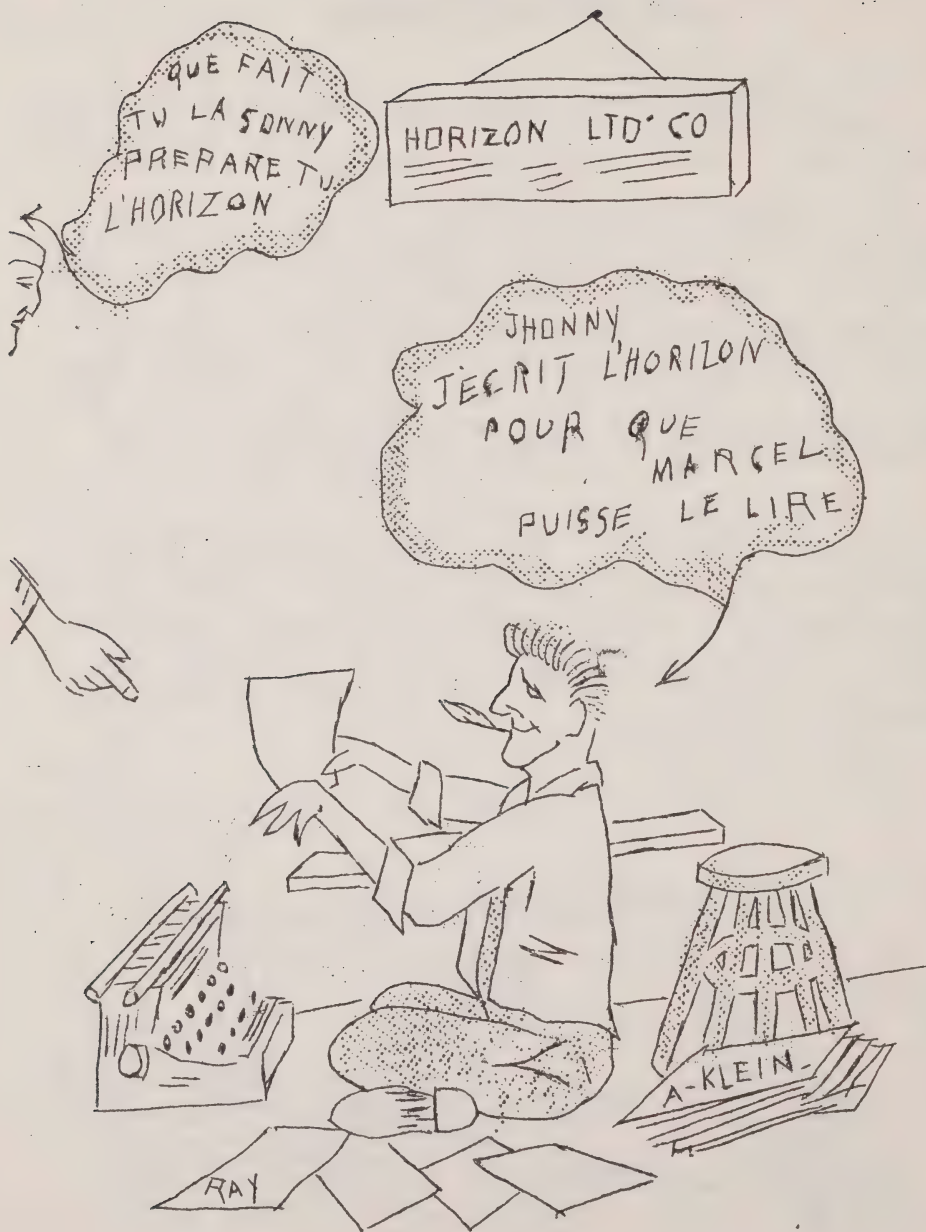 QUE FAIT
TU LA SONNY
PREPARE TU
L'HORIZON
HORIZON LTD· CO
JHONNY
J'ÉCRIT L'HORIZON
POUR QUE
MARCEL
PUISSE LE LIRE
A-KLEIN-
RAY